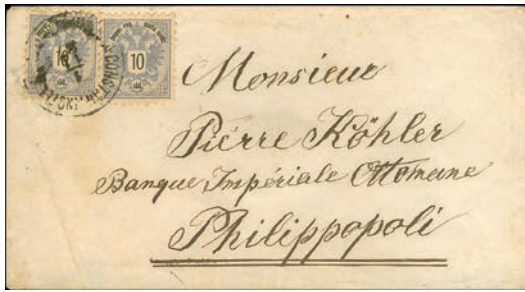 10 10
Monsieur
Piérre Köhler
Banque Impériale Ottomane
Philippopoli